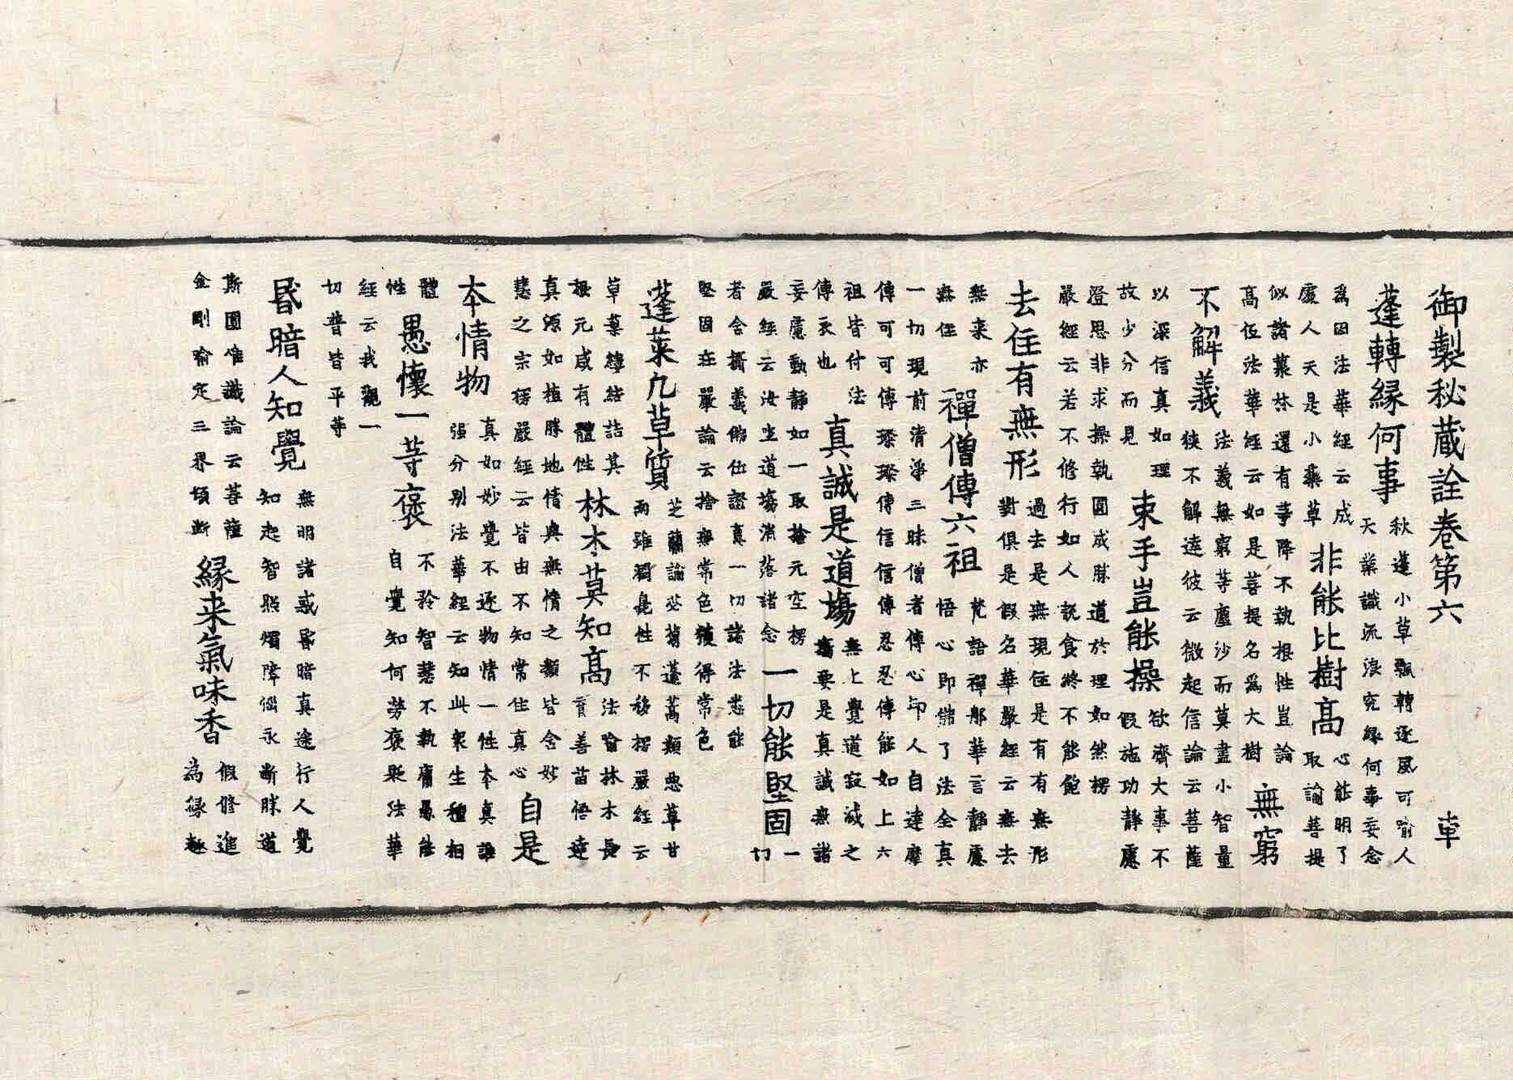 御製秘蔵詮卷第六 車
蓬轉緣何事
秋蓬小草飄轉逐風可喻人
天業識流浪究緣何事妄念
爲因法華經云成
處人天是小藥草
非能比樹高
心能明了
取論菩提
似諸叢林還有事降不執根性豈論
高伍法華經云如是菩提名爲大樹
無窮
不解義
法義無窮等塵沙而莫盡小智量
狹不解遠彼云微起信論云菩薩
以深信真如理
故少分而見
束手豈能操
欲齊大事不
假施功靜慮
澄思非求操執圓成勝道於理如然楞
嚴經云若不修行如人說食終不能飽
去住有無形
過去是無現住是有有無形
對俱是假名華嚴經云無去
無来亦
無住
禪僧傳六祖
梵語禪那華言靜慮
悟心即能了法全真
一切現前清淨三昧僧者傳心印人自達摩
傳可可傳璨璨傳信信傳忍忍傳能如上六
祖皆付法
傳衣也
真誠是道場
無上覺道寂滅之
場要是真誠無諸
妄慮動靜如一取捨元空楞
嚴經云汝坐道場消落諸念
一切能堅固
一
切
者含攝義佛位證真一切諸法悉能
堅固在嚴論云捨無常色獲得常色
蓬萊凡草質
芝蘭論必蒿蓬蒿類惡草甘
雨雖獨是性不移楞嚴經云
草葉縷結詰其
根元咸有體性
林木莫知高
法喻林木長
育善苗悟達
真源如植勝地情與無情之類皆含妙
慧之宗楞嚴經云皆由不知常住真心
自是
本情物
真如妙覺不逐物情一性本真誰
强分別法華經云知此衆生種相
體
性
愚懷一等褒
不矜智慧不執庸愚能
自覺知何勞褒貶法華
經云我觀一
切普皆平等
昏暗人知覺
無明諸惑昏暗真途行人覺
知起智照燭障惱永斷勝道
斯圓唯識論云菩薩
金剛喻定三界頓斷
緣来氣味香
假修進
為緣趣